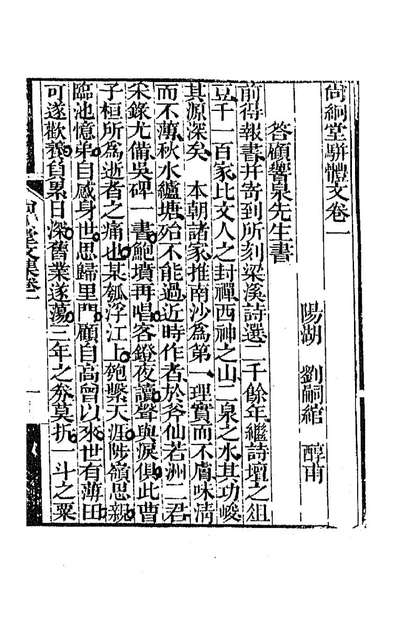 尚絅堂駢體文卷一
陽湖 劉嗣綰 醇甫
答顧響泉先生書
前得報書并寄到所刻梁溪詩選二千餘年繼詩壇之俎
豆千一百家比文人之封禪西神之山二泉之水其功峻
其源深矣 本朝諸家推南沙為第一理實而不膚味淸
而不薄秋水纑塘殆不能過近時作者於斧仙若洲二君
采錄尤備吳碑一書鮑墳再唱客鐙夜讀聲與淚俱此曹
子桓所為逝者之痛也某瓠浮江上匏繫天涯陟嶺思親
臨池憶弟自感身世思歸里門顧自高曾以來世有薄田
可遂歡養負累日深舊業遂蕩三年之券莫折一斗之粟